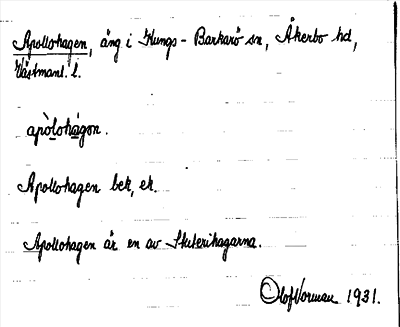 Apollohagen, äng i Kungs-Barkarö sn, Åkerbo hd,
Västmanl. l.
apòlohágon.
Apollohagen bek, ek.
Apollohagen är en av Skuterihagarna.
Olof Norman 1931.